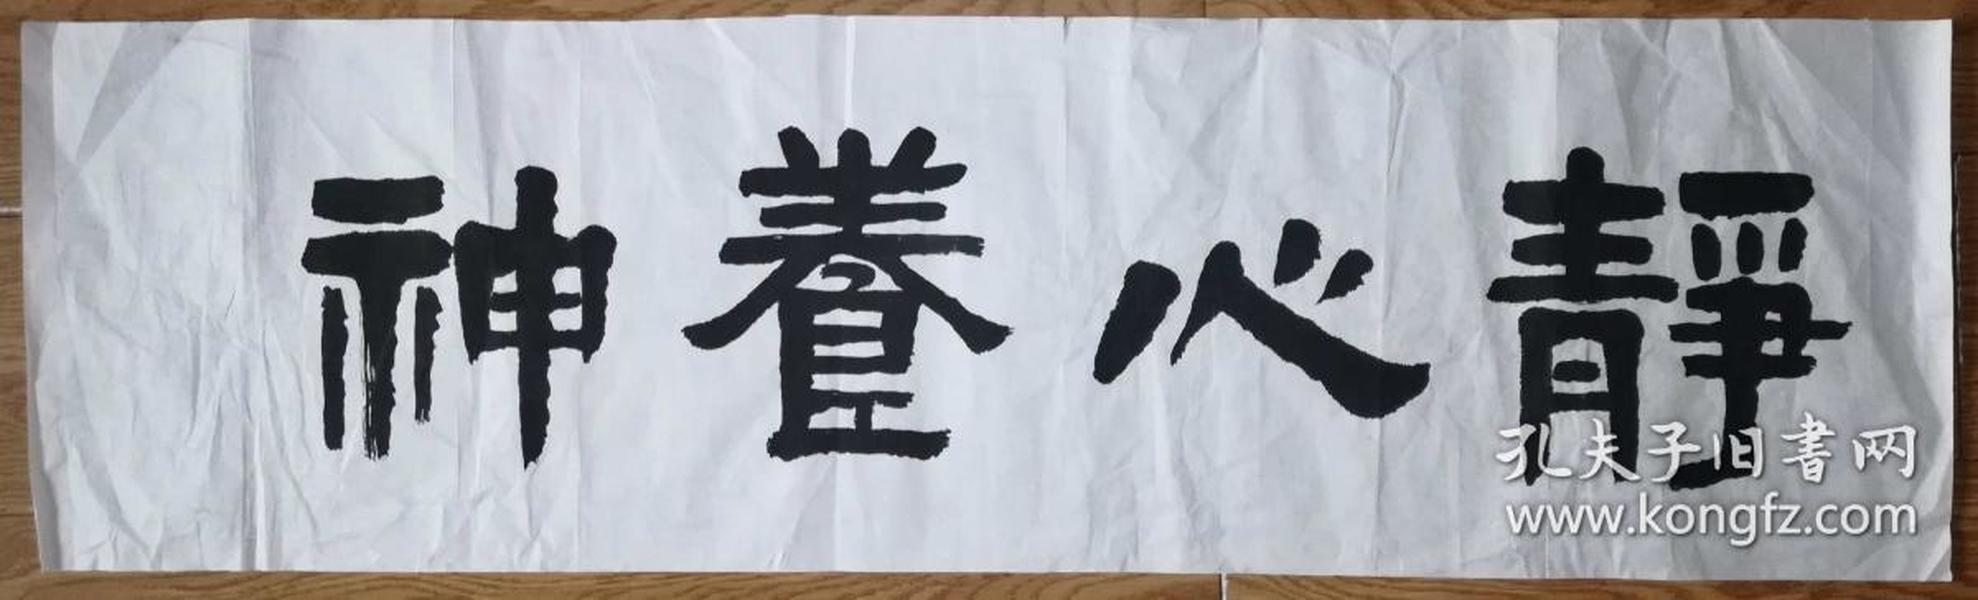 靜心養神
孔夫子旧書网
www.kongfz.com